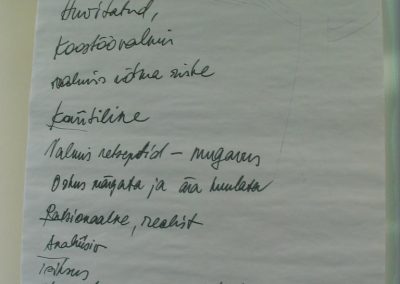 Huvitatud,
Koostöövalmis
valmis võtma riske
Kriitiline
Valmis retseptid – mugavus
Oskus märgata ja ära kuulata
Ratsionaalne, realist
Analüüsiv
Täpsus